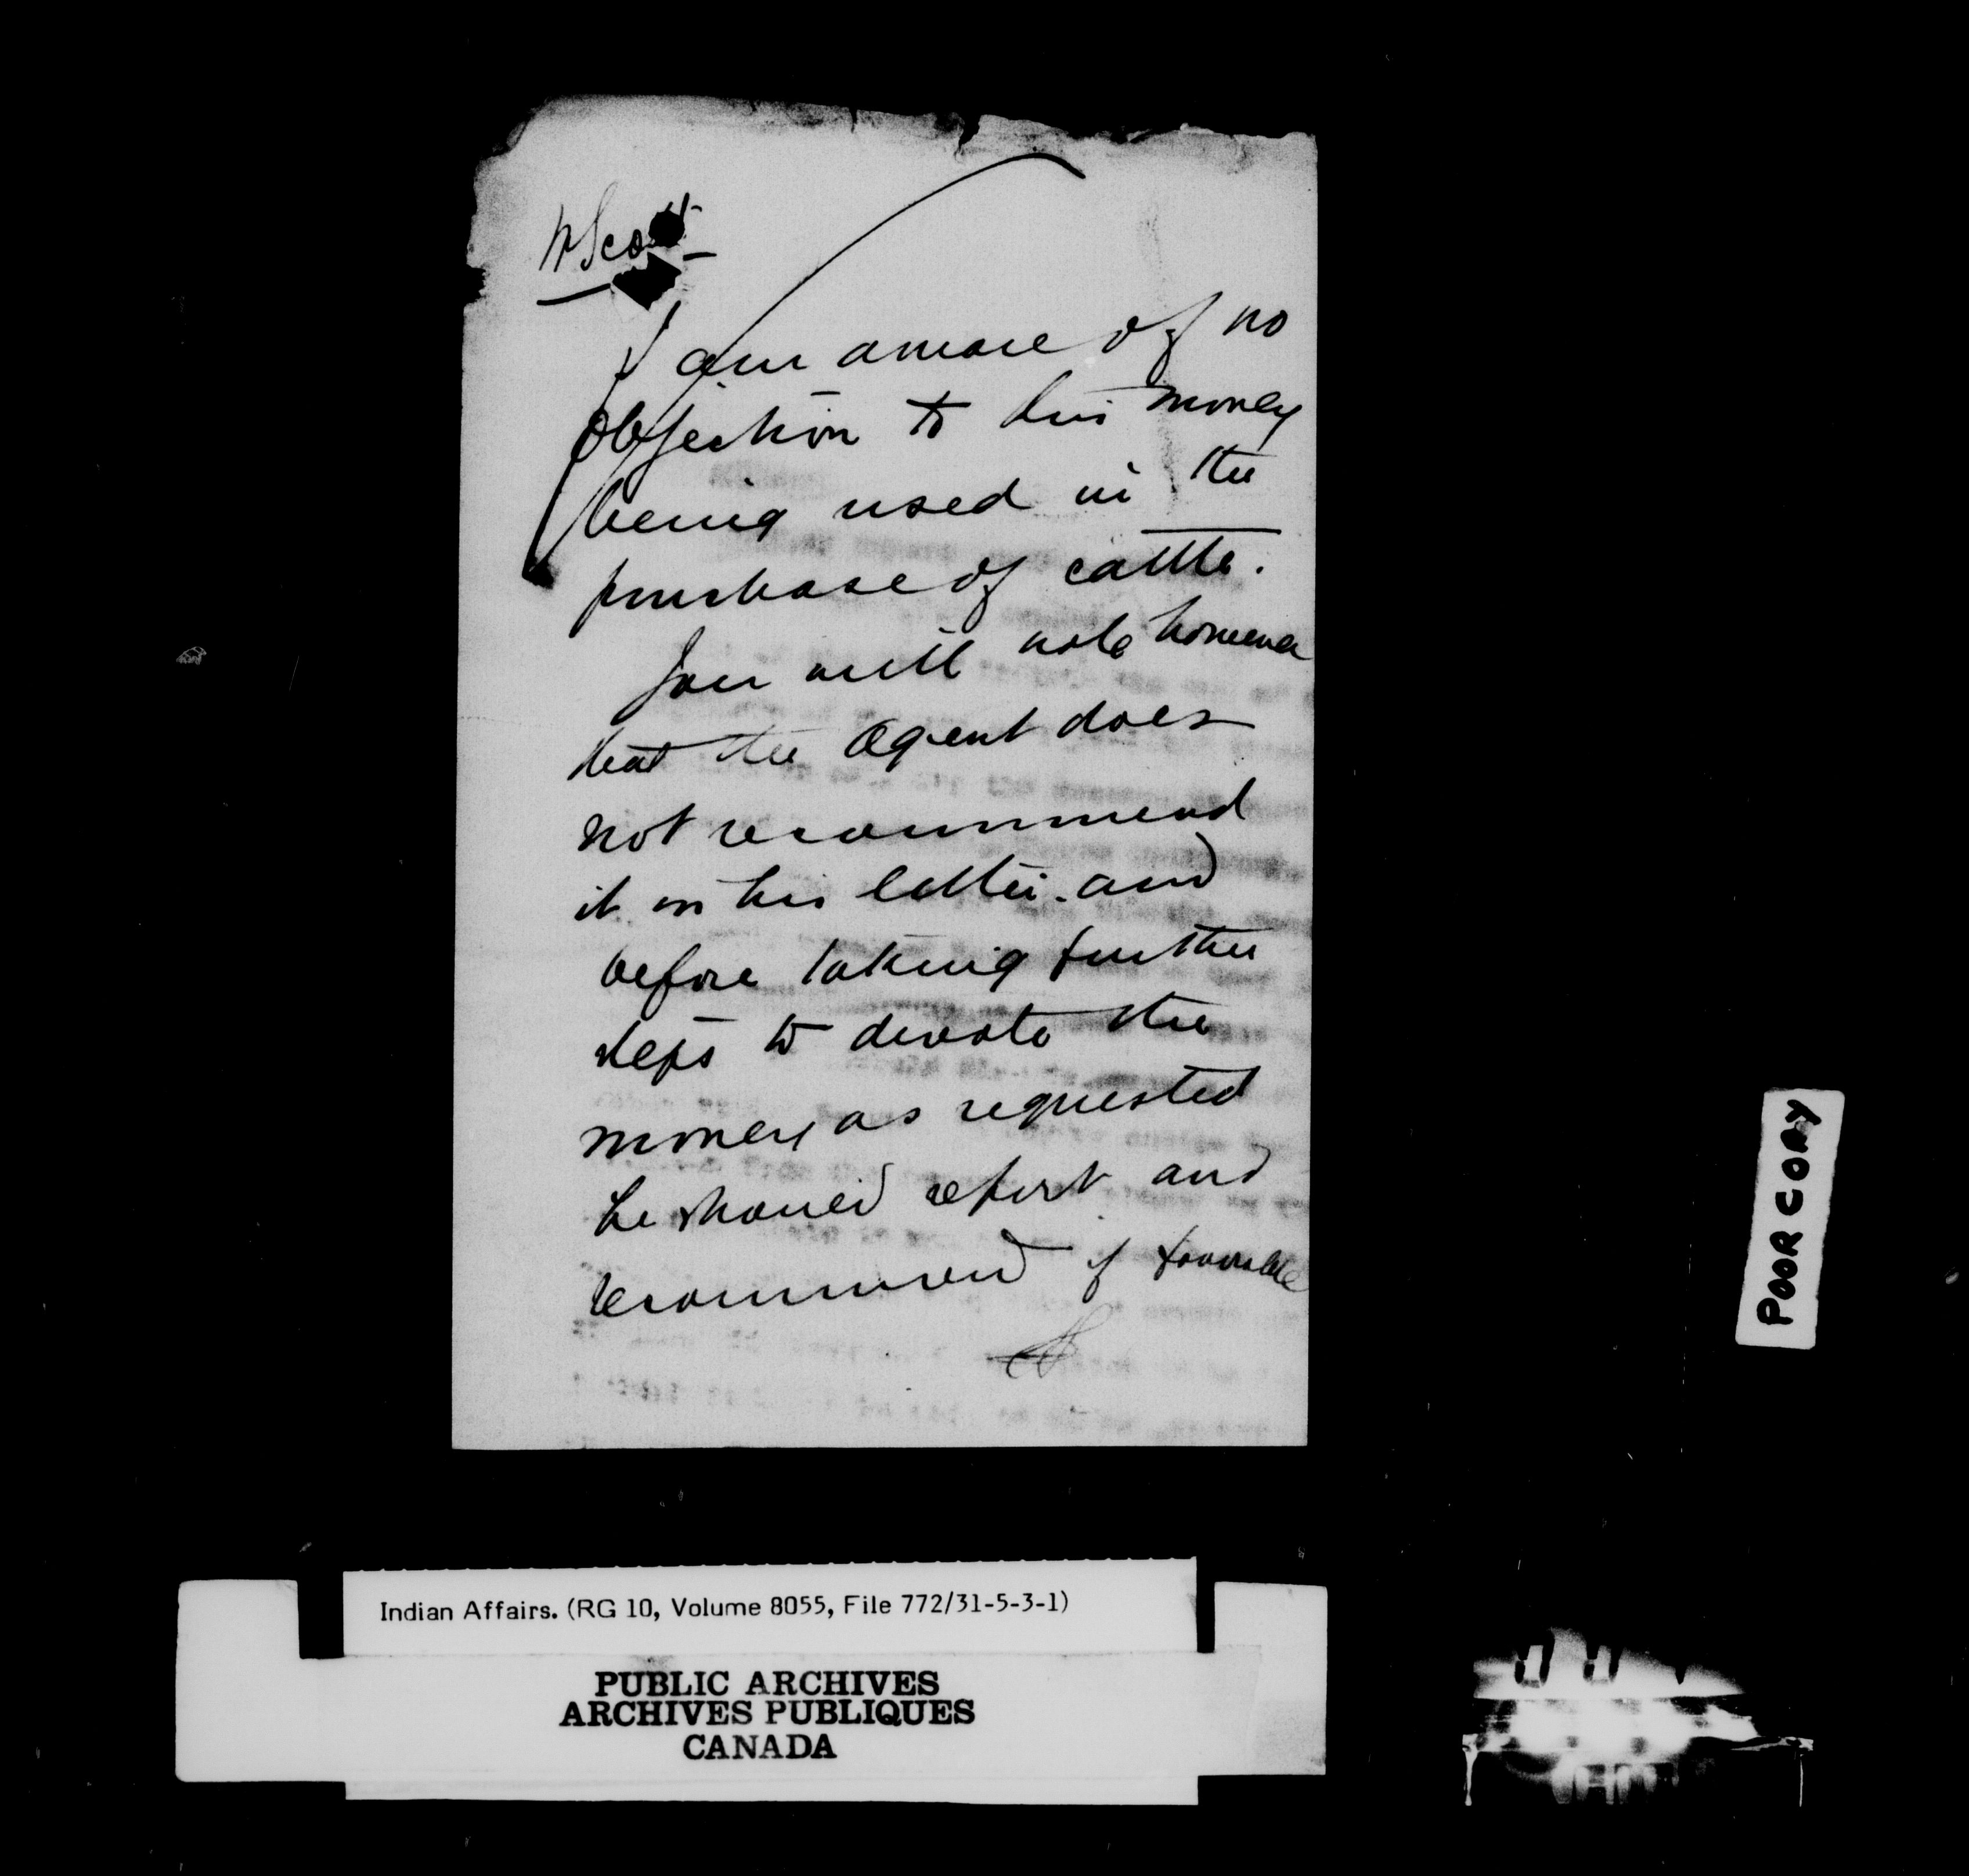 Mr Scott
I am aware of no
objection to this money
being used in the
purchase of cattle.
You will note however
that the Agent does
not recommend
it in his letter. and
before taking further
steps to devote the
money as requested
he should report and
recommend if favorable
POOR COPY
Indian Affairs. (RG 10, Volume 8055, File 772/31-5-3-1)
PUBLIC ARCHIVES
ARCHIVES PUBLIQUES
CANADA